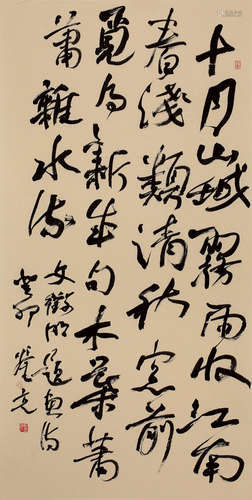 十月山城霧雨收江南
春淺類清秋窗前
覓得新成句木葉蕭
蕭雜水流
文徵明題畫詩
癸卯